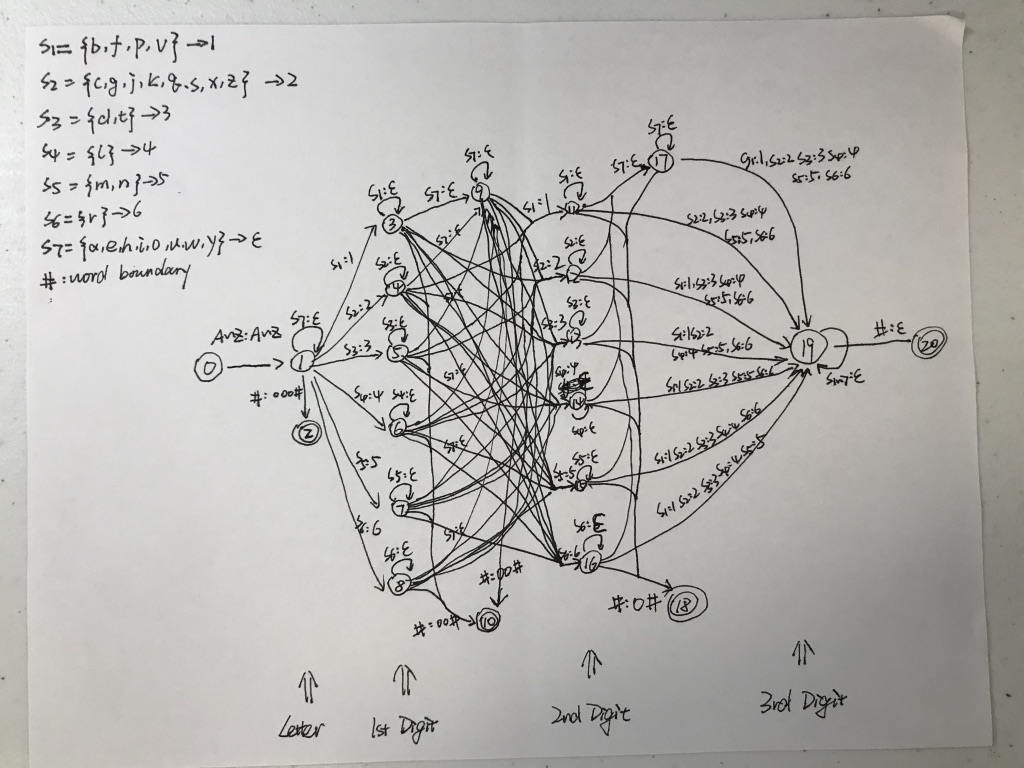 S1 = {b,f,p,v} →1
S2 = {c,g,j,k,q,s,x,z} →2
S3 = {d,t} →3
S4 = {l} →4
S5 = {m,n} →5
S6 = {r} →6
S7 = {a,e,h,i,o,u,w,y} → ε
#: word boundary
A~Z:A~Z
0
S7:ε
1
#: 000#
2
S1:1
S2:2
S3:3
S4:4
S5:5
S6:6
S1:ε
3
S2:ε
4
5
S4:ε
6
S5:ε
7
S6:ε
8
S7:ε
S7:ε
9
#:00#
#:00#
10
S1:1
S2:2
S3:3
S4:4
S5:5
S6:6
S1:ε
S2:ε
12
13
14
S4:ε
S5:ε
S6:ε
16
S7:ε
S7:ε
17
#:0#
18
S1:1, S2:2 S3:3 S4:4
S5:5, S6:6
S2:2, S3:3 S4:4
S5:5, S6:6
S1:1, S3:3 S4:4
S5:5, S6:6
S1:1 S2:2
S4:4 S5:5, S6:6
S1:1 S2:2 S3:3 S5:5 S6:6
S1:1 S2:2 S3:3 S4:4 S6:6
S1:1 S2:2 S3:3 S4:4 S5:5
19
S1~7:ε
#:ε
20
⇑ ⇑ ⇑ ⇑
Letter 1st Digit 2nd Digit 3rd Digit